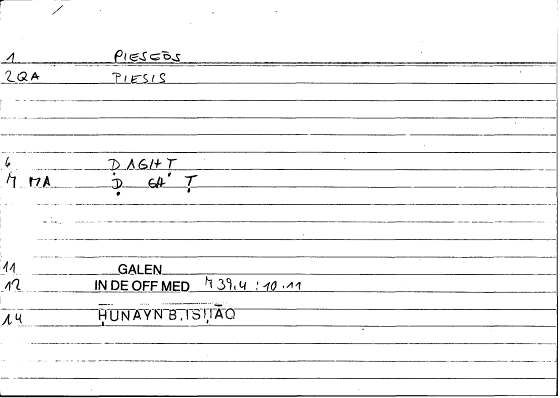 1 PIESEŌS
2QA PIESIS
6 ḌAGHṬ
M MA Ḍ GḤ Ṭ
11 GALEN
12 IN DE OFF MED M 39.4 : 10.11
14 ḤUNAYN B. ISḤĀQ